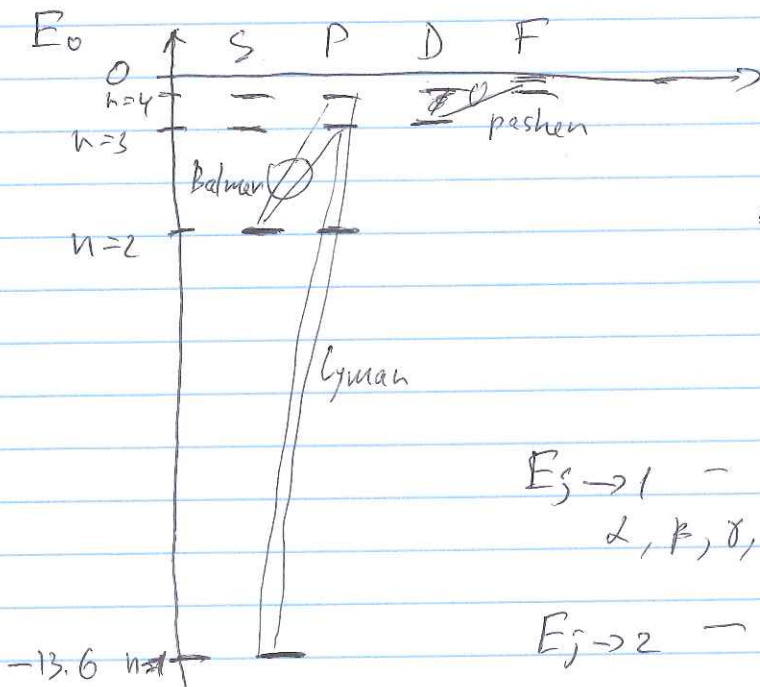 E₀ S P D F
0
n=4
n=3
pashen
Balmer
n=2
Lyman
Ej → 1 –
α, β, γ,
Ej → 2 –
-13.6 n=1